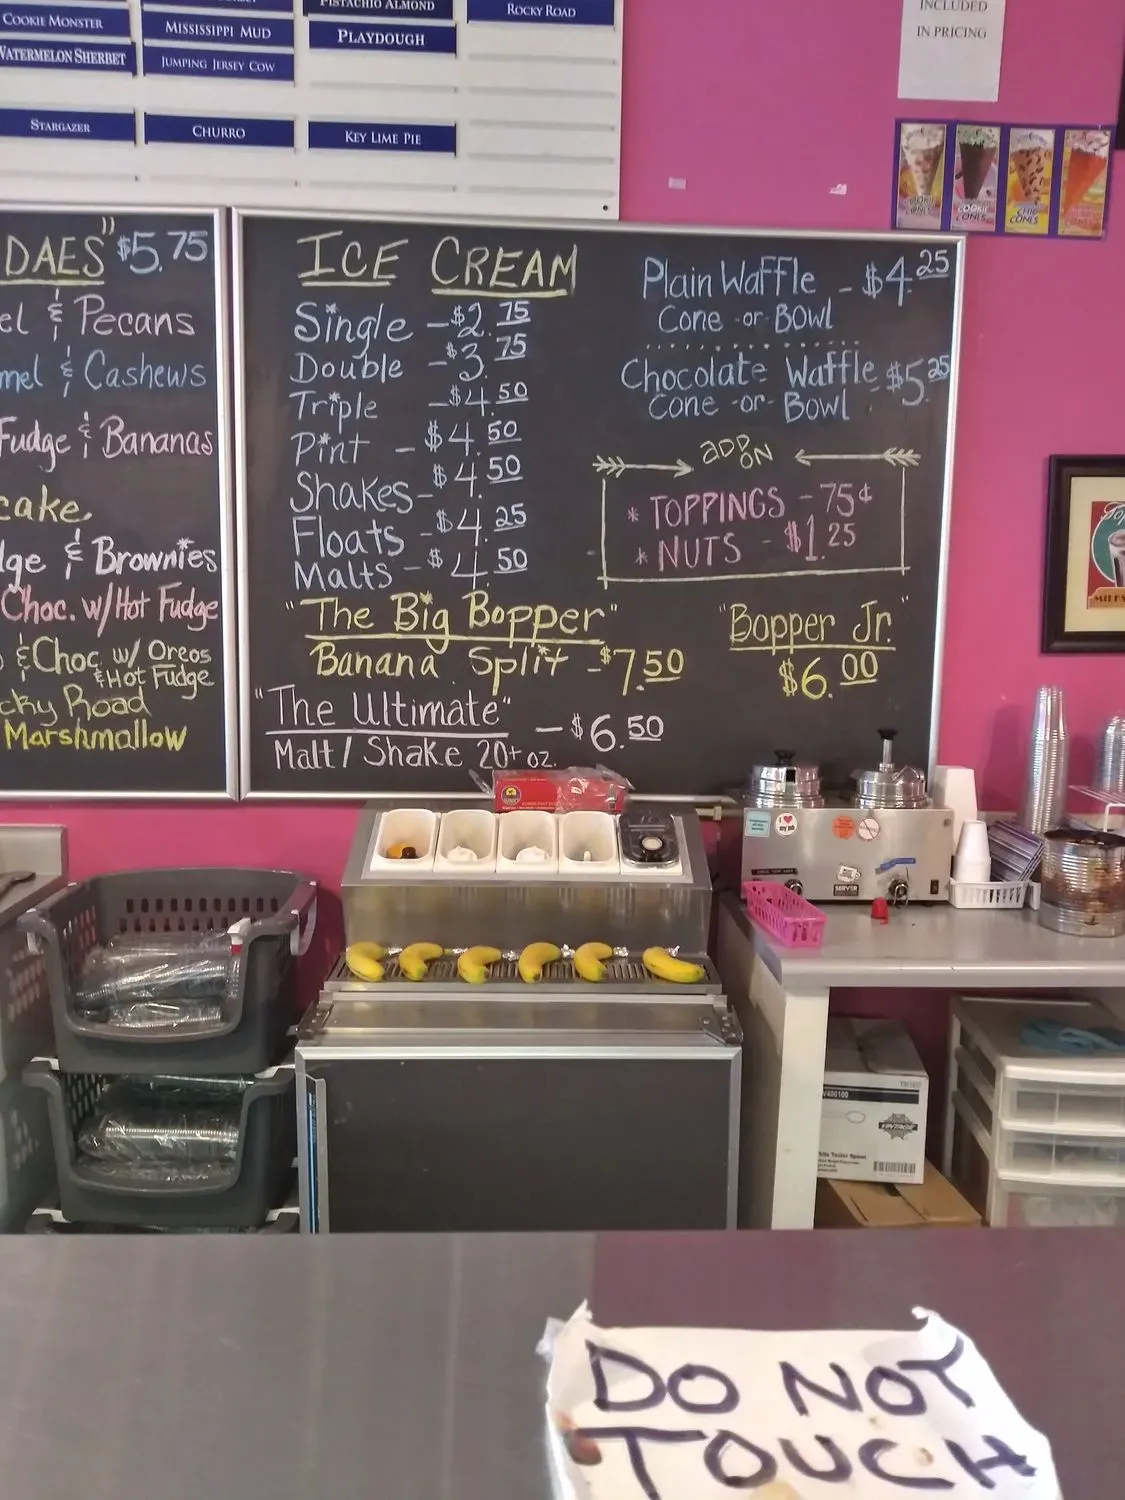 COOKIE MONSTER
WATERMELON SHERBET
STARGAZER
MISSISSIPPI MUD
JUMPING JERSEY COW
CHURRO
PISTACHIO ALMOND
PLAYDOUGH
KEY LIME PIE
ROCKY ROAD
INCLUDED
IN PRICING
COOKIE CONES
CHIP CONES
DAES" $5.75
el & Pecans
mel & Cashews
Fudge & Bananas
cake
dge & Brownies
Choc. w/Hot Fudge
& Choc w/ Oreos
& Hot Fudge
cky Road
Marshmallow
ICE CREAM
Single - $2.75
Double - $3.75
Triple - $4.50
Pint - $4.50
Shakes - $4.50
Floats - $4.25
Malts - $4.50
"The Big Bopper"
Banana Split - $7.50
"The Ultimate" - $6.50
Malt / Shake 20+ oz.
Plain Waffle - $4.25
Cone -or- Bowl
Chocolate Waffle $5.25
Cone -or- Bowl
ADD ON
* TOPPINGS - 75¢
* NUTS - $1.25
"Bopper Jr."
$6.00
I ♥ my job
SERVER
MILKS
VINTAGE
DO NOT
TOUCH